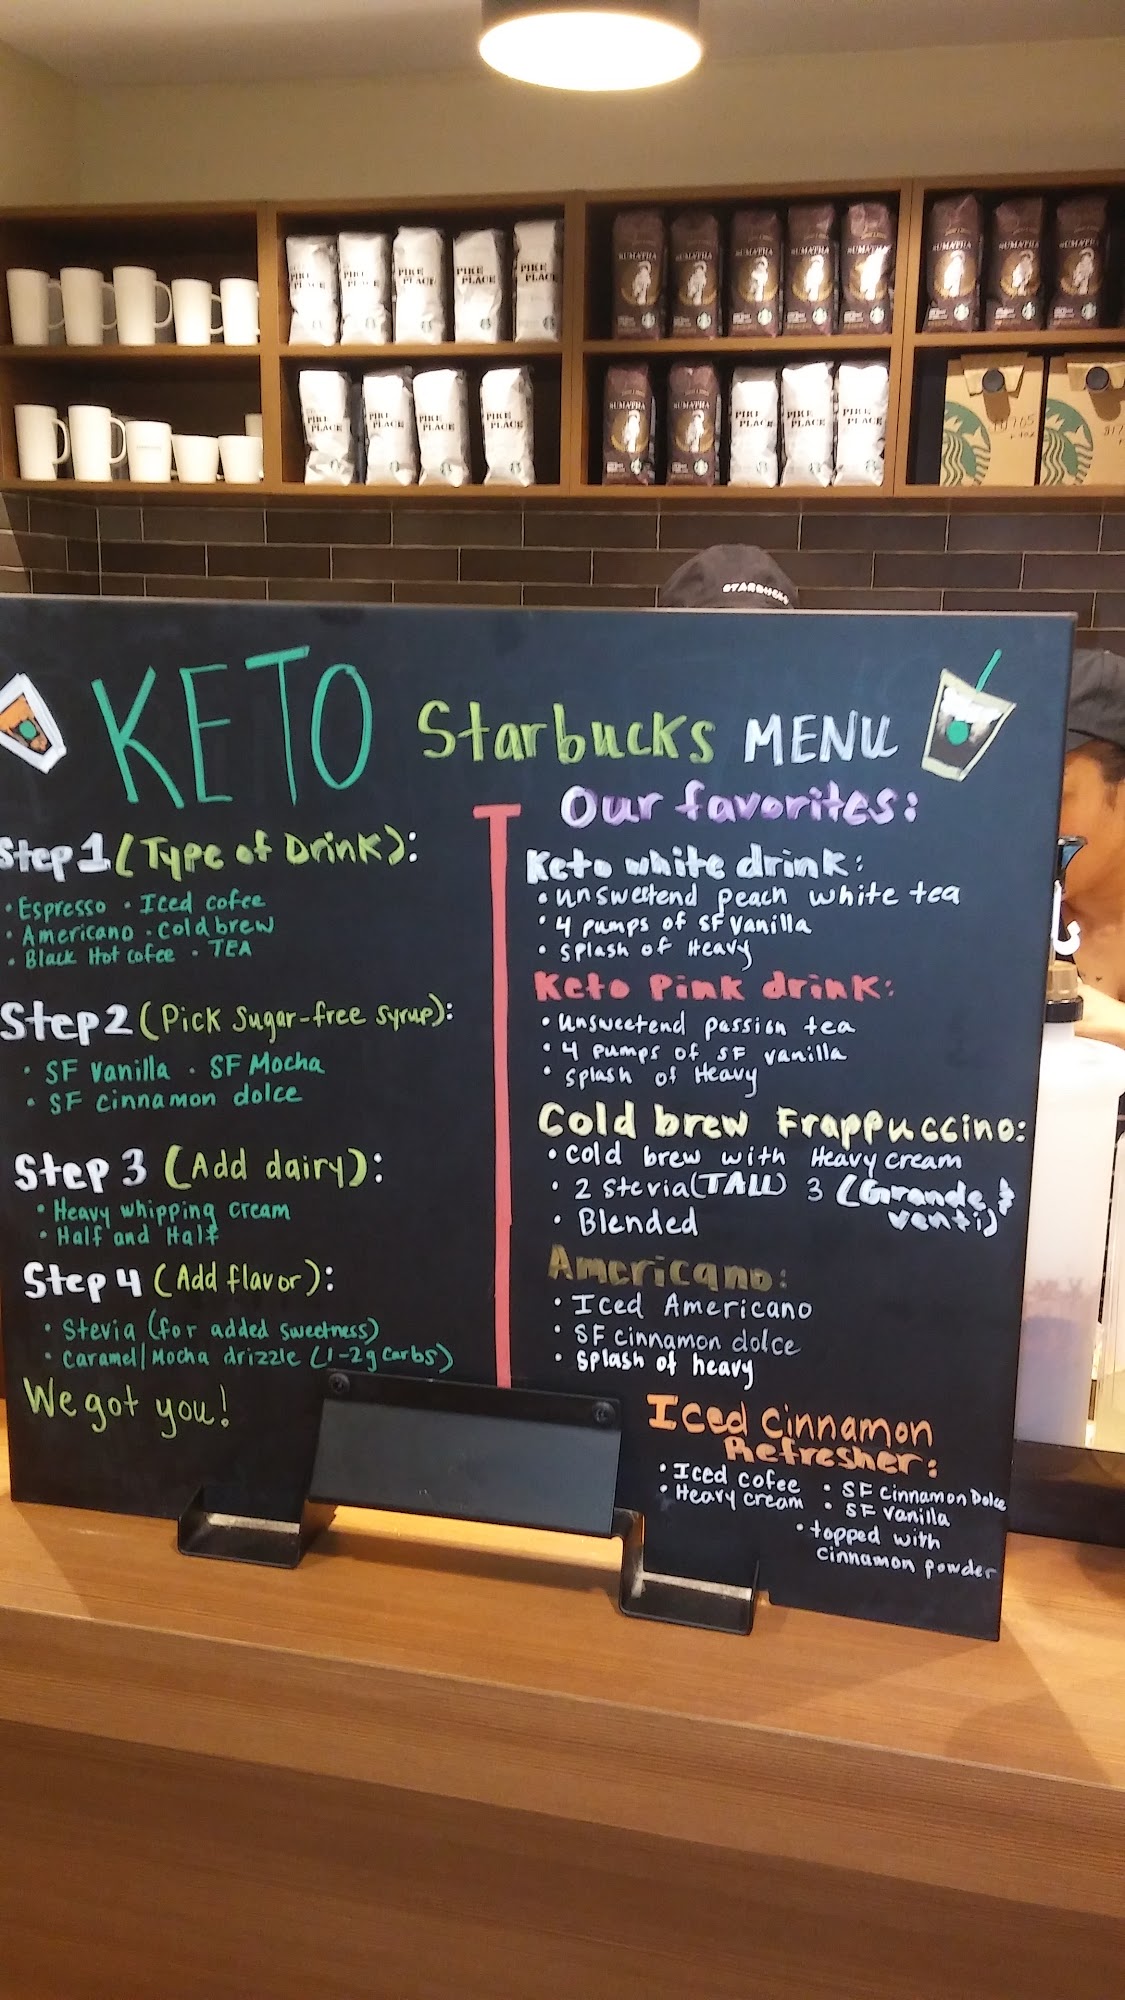 PIKE PLACE
PIKE PLACE
PIKE PLACE
PIKE PLACE
PIKE PLACE
SUMATRA
SUMATRA
SUMATRA
SUMATRA
SUMATRA
SUMATRA
SUMATRA
SUMATRA
PIKE PLACE
PIKE PLACE
PIKE PLACE
PIKE PLACE
SUMATRA
SUMATRA
PIKE PLACE
PIKE PLACE
PIKE PLACE
STARBUCKS
KETO Starbucks MENU
Step 1 (Type of Drink):
• Espresso • Iced cofee
• Americano • Cold brew
• Black Hot cofee • TEA
Step 2 (Pick Sugar-free syrup):
• SF Vanilla • SF Mocha
• SF cinnamon dolce
Step 3 (Add dairy):
• Heavy whipping cream
• Half and Half
Step 4 (Add flavor):
• Stevia (for added sweetness)
• Caramel/Mocha drizzle (1-2g carbs)
We got you!
Our favorites:
Keto white drink:
• unsweetend peach white tea
• 4 pumps of SF Vanilla
• splash of Heavy
Keto Pink drink:
• unsweetend passion tea
• 4 pumps of SF vanilla
• splash of Heavy
Cold brew Frappuccino:
• cold brew with Heavy cream
• 2 stevia (TALL) 3 (Grande &
venti)
• Blended
Americano:
• Iced Americano
• SF cinnamon dolce
• splash of heavy
Iced Cinnamon
Refresher:
• Iced cofee • SF Cinnamon Dolce
• Heavy cream • SF vanilla
• topped with
cinnamon powder